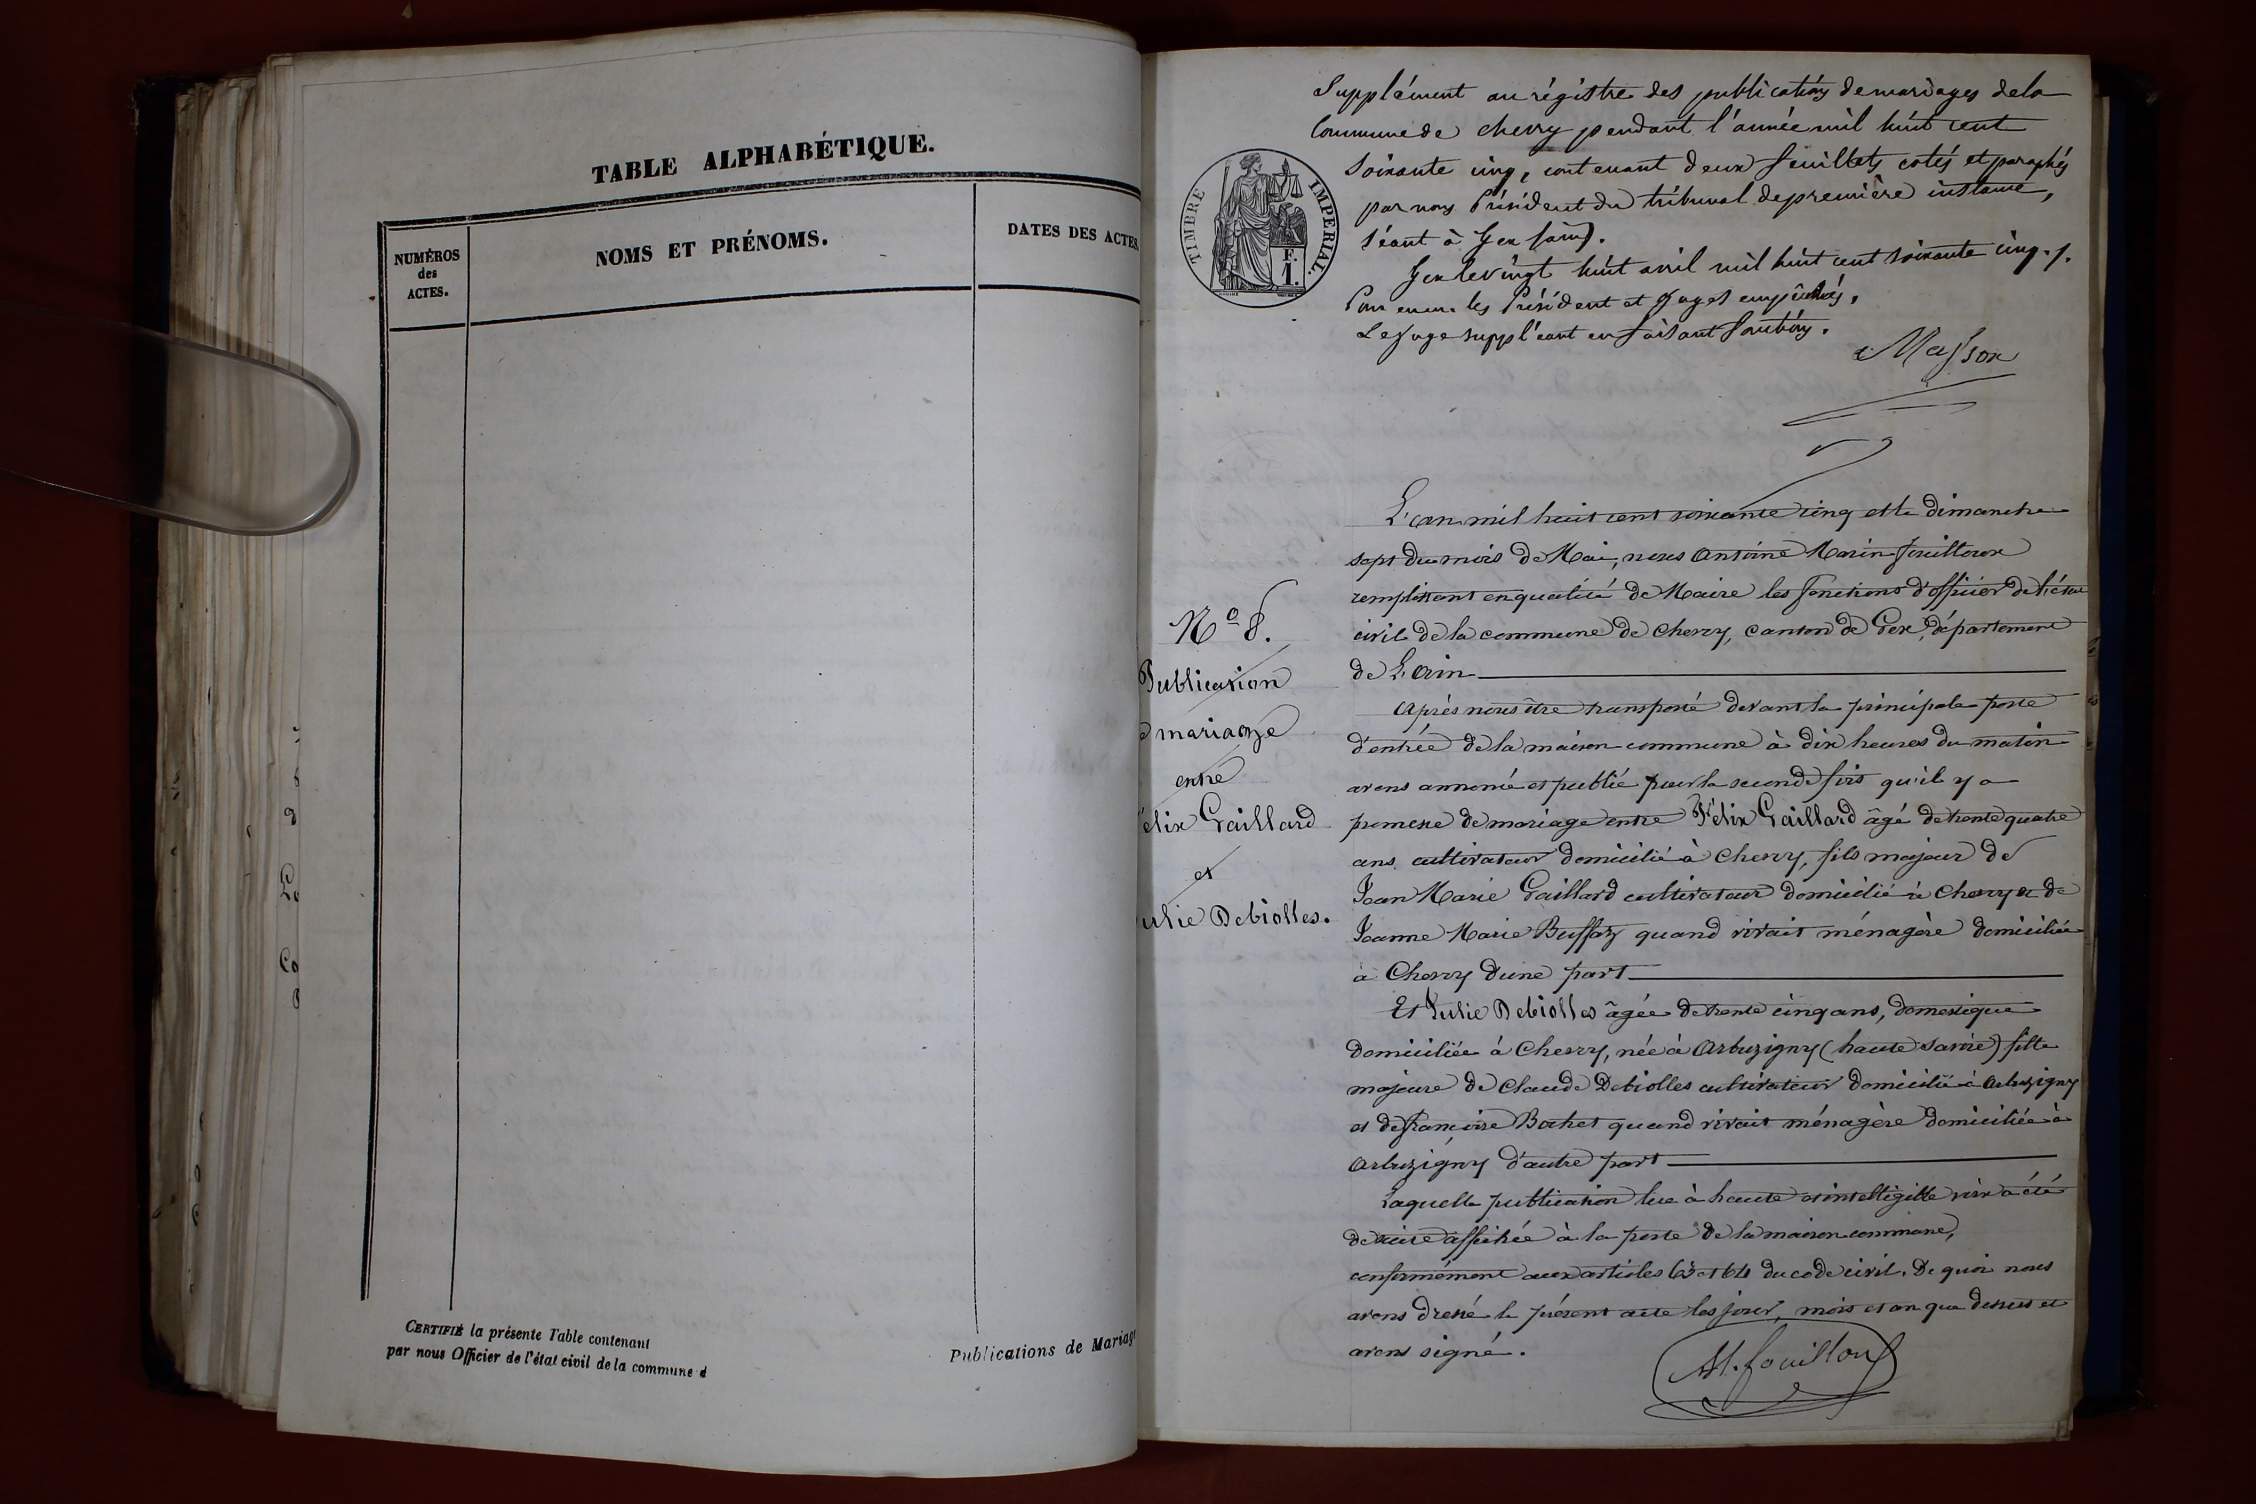 TABLE ALPHABÉTIQUE.
NUMÉROS
des
ACTES.
NOMS ET PRÉNOMS.
DATES DES ACTES
CERTIFIÉ la présente Table contenant
par nous Officier de l'état civil de la commune d
Publications de Mariag
Supplément au régistre des publications de mariages de la
Commune de Chevry pendant l'année mil huit cent
soixante cinq, contenant deux feuillets cotés et paraphés
par nous Président du tribunal de première instance,
séant à Gex (ain).
Gex le vingt huit avril mil huit cent soixante cinq./.
Pour les Président et Juges empêchés,
Le Juge suppléant en faisant fonctions.
Masson
TIMBRE IMPERIAL.
F.
1.
L'an mil huit cent soixante cinq et le dimanche
sept du mois de Mai, nous Antoine Marin fouilloux
remplissant en qualité de Maire les fonctions d'officier de l'état
civil de la commune de Chevry, canton de Gex, département
de L'Ain
Après nous être transporté devant la principale porte
d'entrée de la maison commune à dix heures du matin
avons annoncé et publié pour la seconde fois qu'il y a
promesse de mariage entre Félix Gaillard âgé de trente quatre
ans cultivateur domicilié à Chevry, fils majeur de
Jean Marie Gaillard cultivateur domicilié à Chevry et de
Jeanne Marie Buffaz quand vivait ménagère domiciliée
à Chevry d'une part
Et Julie Debiolles âgée de trente cinq ans, domestique
domiciliée à Chevry, née à Arbuzigny (haute savoie) fille
majeure de Claude Debiolles cultivateur domicilié à Arbuzigny
et de françoise Bochet quand vivait ménagère domiciliée à
Arbuzigny d'autre part
Laquelle publication lue à haute et intelligible voix a été
de suite affichée à la porte de la maison commune,
conformément aux articles 63 et 64 du code civil. De quoi nous
avons dressé le présent acte les jour, mois et an que dessus et
avons signé.
AM. fouilloux
No 8.
Publication
mariage
entre
élix Gaillard
et
ulie Debiolles.